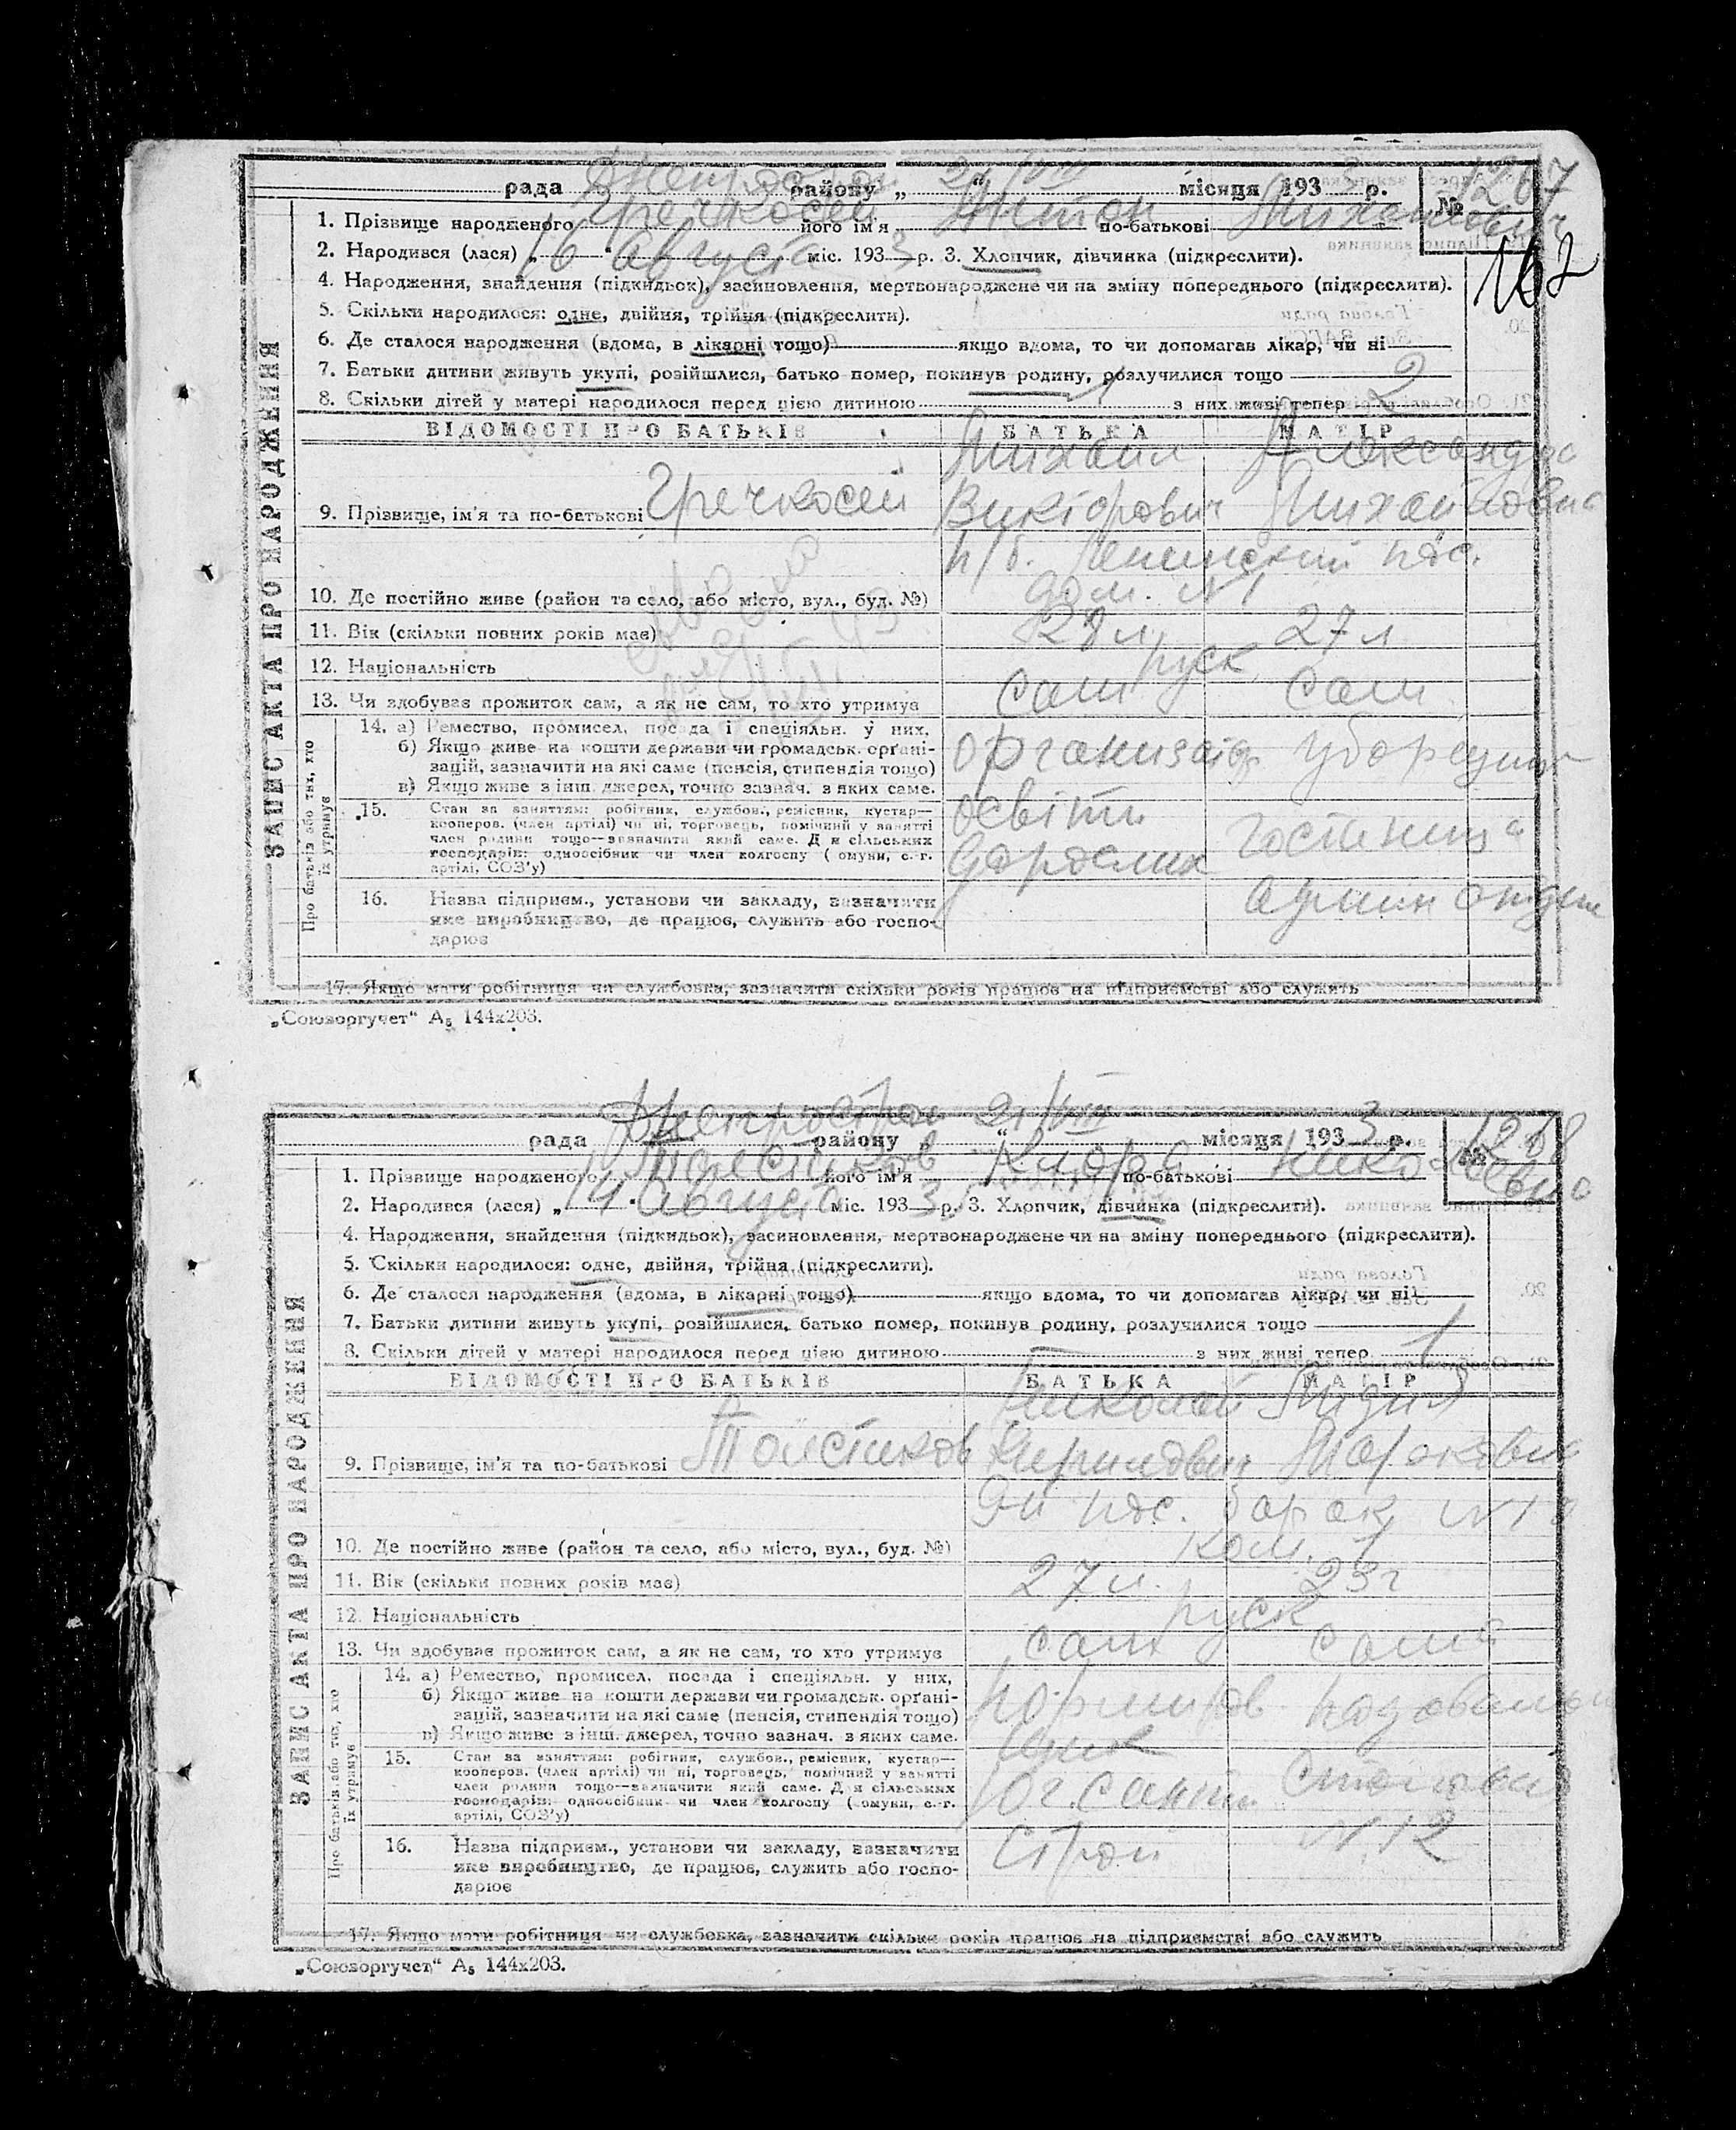 рада Днепрострой району „ 21/VIII “ місяця 1933 р. № 1267
1. Прізвище народженого Гречкосей його ім'я Антон по-батькові Михайлович
2. Народився (лася) „16“ Августа міс. 1933 р. 3. Хлопчик, дівчинка (підкреслити).
162
4. Народження, знайдення (підкидьок), засиновлення, мертвонароджене чи на зміну попереднього (підкреслити).
5. Скільки народилося: одне, двійня, трійня (підкреслити).
6. Де сталося народження (вдома, в лікарні тощо) якщо вдома, то чи допомагав лікар, чи ні
7. Батьки дитини живуть укупі, розійшлися, батько помер, покинув родину, розлучилися тощо
8. Скільки дітей у матері народилося перед цією дитиною 1 з них живі тепер 2
ЗАПИС АКТА ПРО НАРОДЖЕННЯ
ВІДОМОСТІ ПРО БАТЬКІВ БАТЬКА МАТІР
Михаил Александра
9. Прізвище, ім'я та по-батькові Гречкосей Викторович Михайловна
п/б. Ленинский пос.
10. Де постійно живе (район та село, або місто, вул., буд. №) дом. №1
11. Вік (скільки повних років має) 28 л. 27 л
12. Національність руск
13. Чи здобуває прожиток сам, а як не сам, то хто утримує сам сам
Про батьків або тих, хто їх утримує
14. а) Ремество, промисел, посада і спеціяльн. у них.
б) Якщо живе на кошти держави чи громадськ. органі- организатор уборщица
зацій, зазначити на які саме (пенсія, стипендія тощо)
в) Якщо живе з інш. джерел, точно зазнач. з яких саме.
15. Стан за заняттям: робітник, службов., ремісник, кустар— освіти
кооперов. (член артілі) чи ні, торговець, помічний у занятті гостиница
член родини тощо—зазначити який саме. Для сільських
господарів: одноосібник чи член колгоспу (комуни, с.-г.
артілі, СОЗ'у)
16. Назва підприєм., установи чи закладу, зазначити
яке виробництво, де працює, служить або госпо-
дарює
17. Якщо мати робітниця чи службовка, зазначити скільки років працює на підприємстві або служить
„Союзоргучет“ А₅ 144х203.
рада Днепрострой району „ 21/VIII “ місяця 1933 р. № 1268
1. Прізвище народженого Толстиков його ім'я Клара по-батькові Николаевна
2. Народився (лася) „14“ Августа міс. 1933 р. 3. Хлопчик, дівчинка (підкреслити).
4. Народження, знайдення (підкидьок), засиновлення, мертвонароджене чи на зміну попереднього (підкреслити).
5. Скільки народилося: одне, двійня, трійня (підкреслити).
6. Де сталося народження (вдома, в лікарні тощо) якщо вдома, то чи допомагав лікар, чи ні
20.
7. Батьки дитини живуть укупі, розійшлися, батько помер, покинув родину, розлучилися тощо
8. Скільки дітей у матері народилося перед цією дитиною — з них живі тепер 1
ЗАПИС АКТА ПРО НАРОДЖЕННЯ
ВІДОМОСТІ ПРО БАТЬКІВ БАТЬКА МАТІР
Николай Лидия
9. Прізвище, ім'я та по-батькові Толстиков Кирилович
пос. барак №18
10. Де постійно живе (район та село, або місто, вул., буд. №) ком. 1
11. Вік (скільки повних років має) 27 л. 23 г
12. Національність руск
13. Чи здобуває прожиток сам, а як не сам, то хто утримує сам сама
Про батьків або тих, хто їх утримує
14. а) Ремество, промисел, посада і спеціяльн. у них,
б) Якщо живе на кошти держави чи громадськ. органі- нормиров
зацій, зазначити на які саме (пенсія, стипендія тощо)
в) Якщо живе з інш. джерел, точно зазнач. з яких саме. щик
15. Стан за заняттям: робітник, службов., ремісник, кустар—
кооперов. (член артілі) чи ні, торговець, помічний у занятті
член родини тощо—зазначити який саме. Для сільських Столовая
господарів: одноосібник чи член колгоспу (комуни, с.-г.
артілі, СОЗ'у)
16. Назва підприєм., установи чи закладу, зазначити строй №12
яке виробництво, де працює, служить або госпо-
дарює
17. Якщо мати робітниця чи службовка, зазначити скільки років працює на підприємстві або служить
„Союзоргучет“ А₅ 144х203.